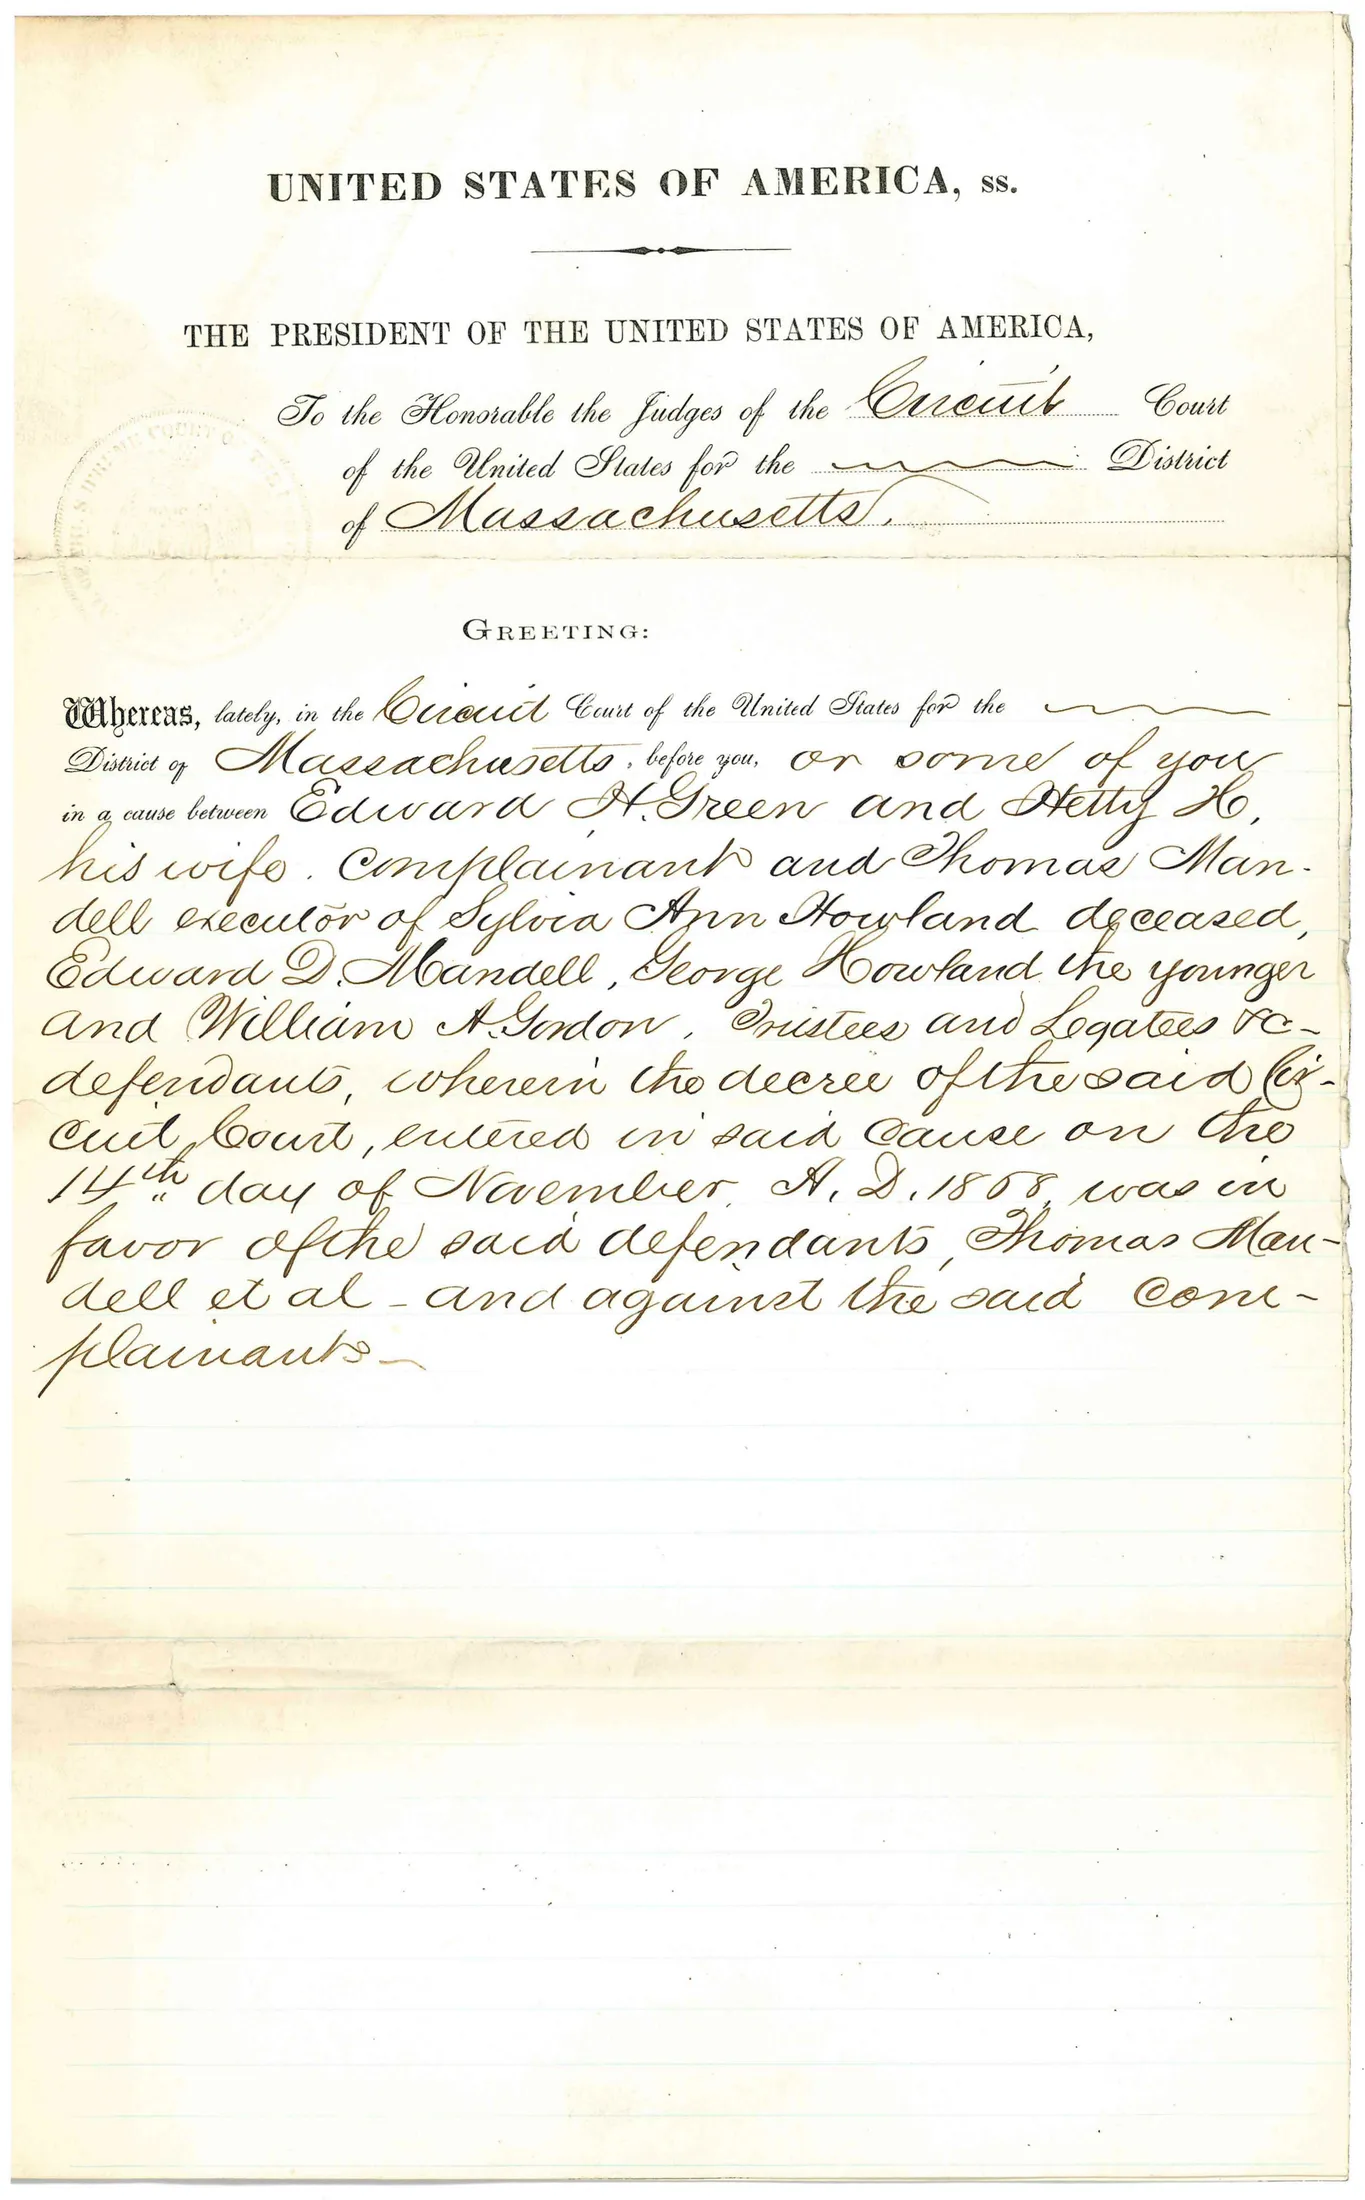 UNITED STATES OF AMERICA, ss.
THE PRESIDENT OF THE UNITED STATES OF AMERICA,
To the Honorable the Judges of the Circuit Court
of the United States for the District
of Massachusetts.
SUPREME COURT O
GREETING:
Whereas, lately, in the Circuit Court of the United States for the
District of Massachusetts, before you, or some of you
in a cause between Edward H. Green and Hetty H.
his wife. Complainants and Thomas Man-
dell executor of Sylvia Ann Howland deceased,
Edward D. Mandell, George Howland the younger
and William A. Gordon, Trustees and Legatees &c-
defendants, wherein the decree of the said Cir-
cuit Court, entered in said cause on the
14th day of November A. D. 1868 was in
favor of the said defendants, Thomas Man-
dell et al - and against the said Com-
plainants-